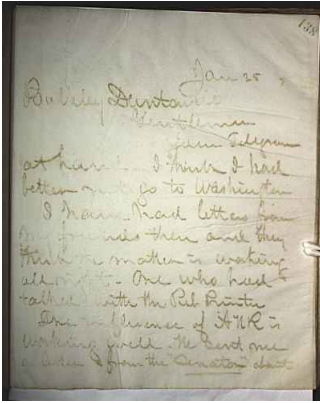 138
Jan 25
Gentlemen
Your Telegram
at hand. I think I had
better not go to Washington
I have had letters from
my friends there and they
think the matter is working
all right - One who had
talked with the Pub Printer
The influence of is
working well. He sent one
a letter from the "Senator"